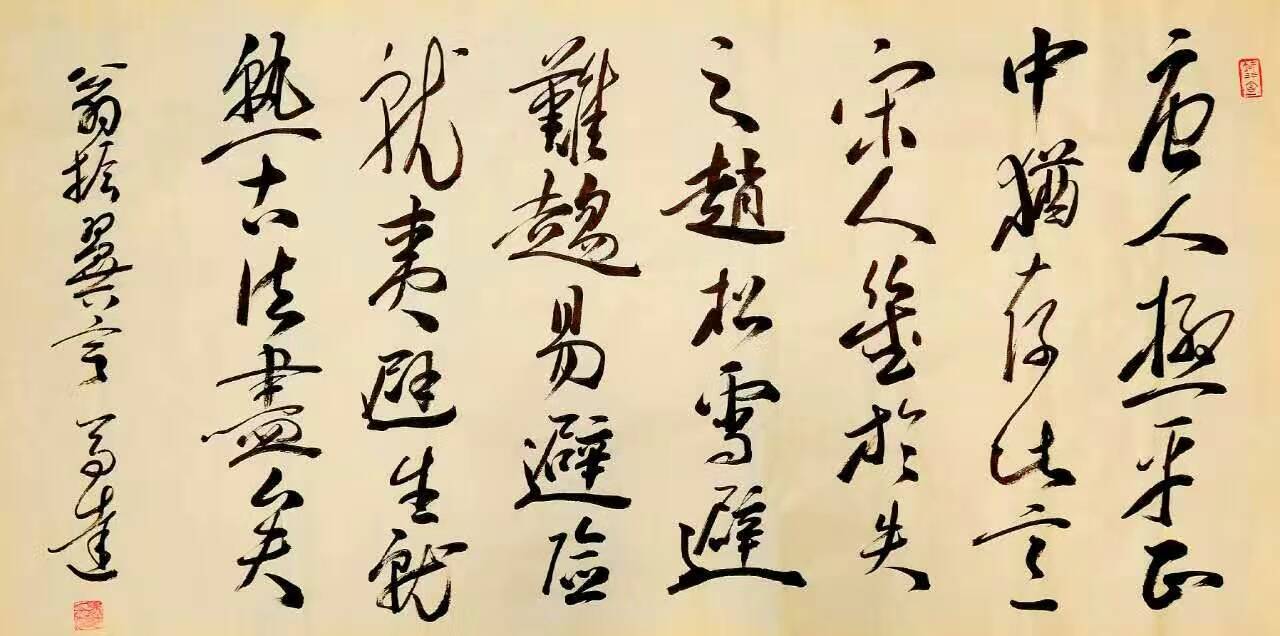 唐人極平正
中猶存此意
宋人笙於失
之趙松雪避
難趨易避險
就夷避生就
熟古法盡矣
翁振翼言